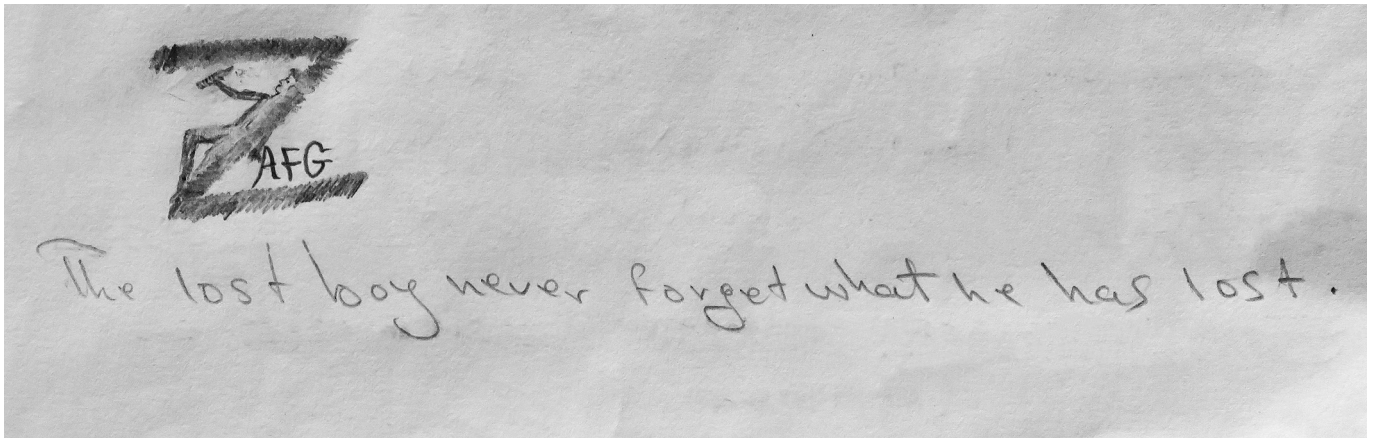 Z
AFG
The lost boy never forget what he has lost.